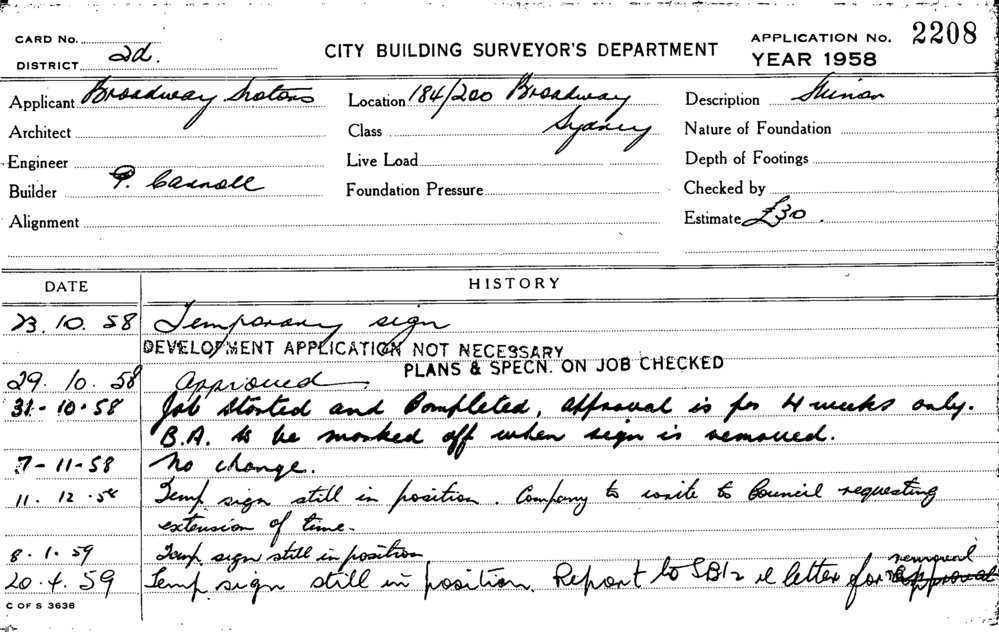 CARD No.
DISTRICT 2d.
CITY BUILDING SURVEYOR'S DEPARTMENT
APPLICATION No. 2208
YEAR 1958
Applicant Broadway Motors
Location 184/200 Broadway
Sydney
Description
Architect
Class
Nature of Foundation
Engineer
Live Load
Depth of Footings
Builder P. Carroll
Foundation Pressure
Checked by
Alignment
Estimate £30.
DATE HISTORY
23.10.58 Temporary sign
DEVELOPMENT APPLICATION NOT NECESSARY
PLANS & SPECN. ON JOB CHECKED
29.10.58 Approved.
31-10-58 Job Started and Completed, approval is for 4 weeks only.
B.A. to be marked off when sign is removed.
7-11-58 No change.
11.12.58 Temp sign still in position. Company to write to Council requesting
extension of time.
8.1.59 Temp. sign still in position
20.4.59 Temp. sign still in position. Report to letter for removal
C OF S 3638